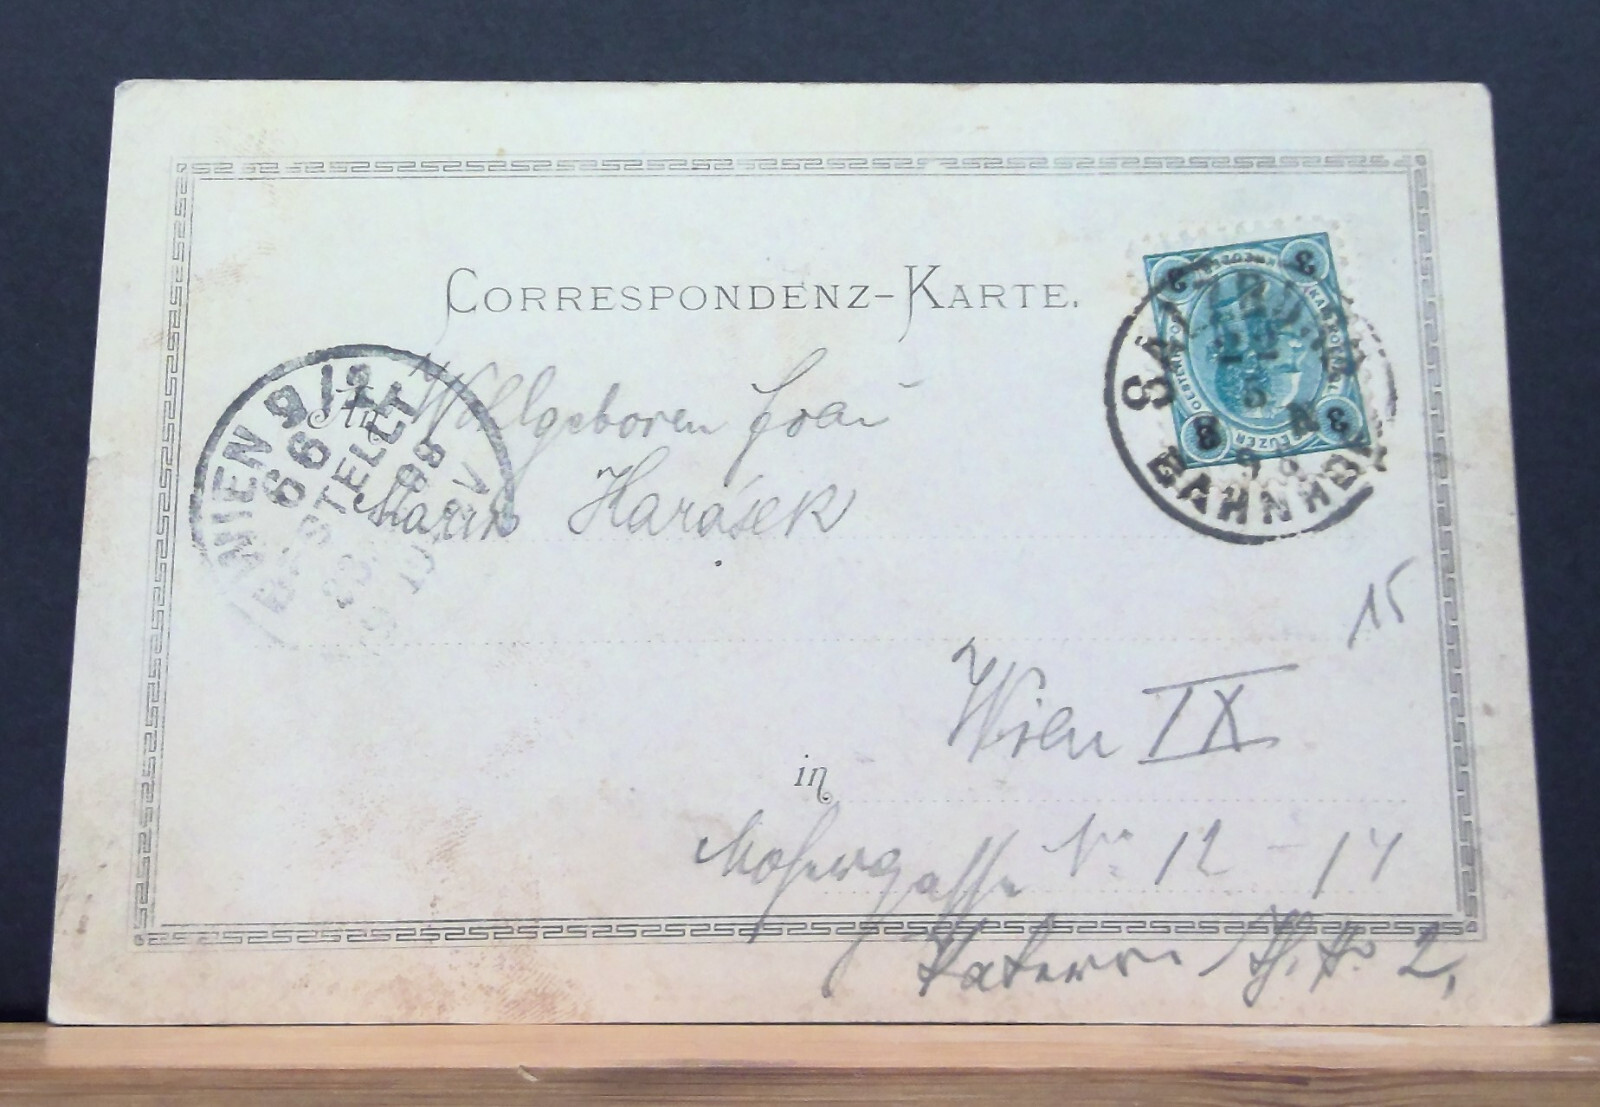 CORRESPONDENZ-KARTE.
An Wohlgeboren Frau
Marie Harásek
15
Wien IX
in
Mosergasse No 12 - 14
2.
WIEN 9/3
66
BESTELLT
98
BAHNHOF
3 3
3 3
KREUZER